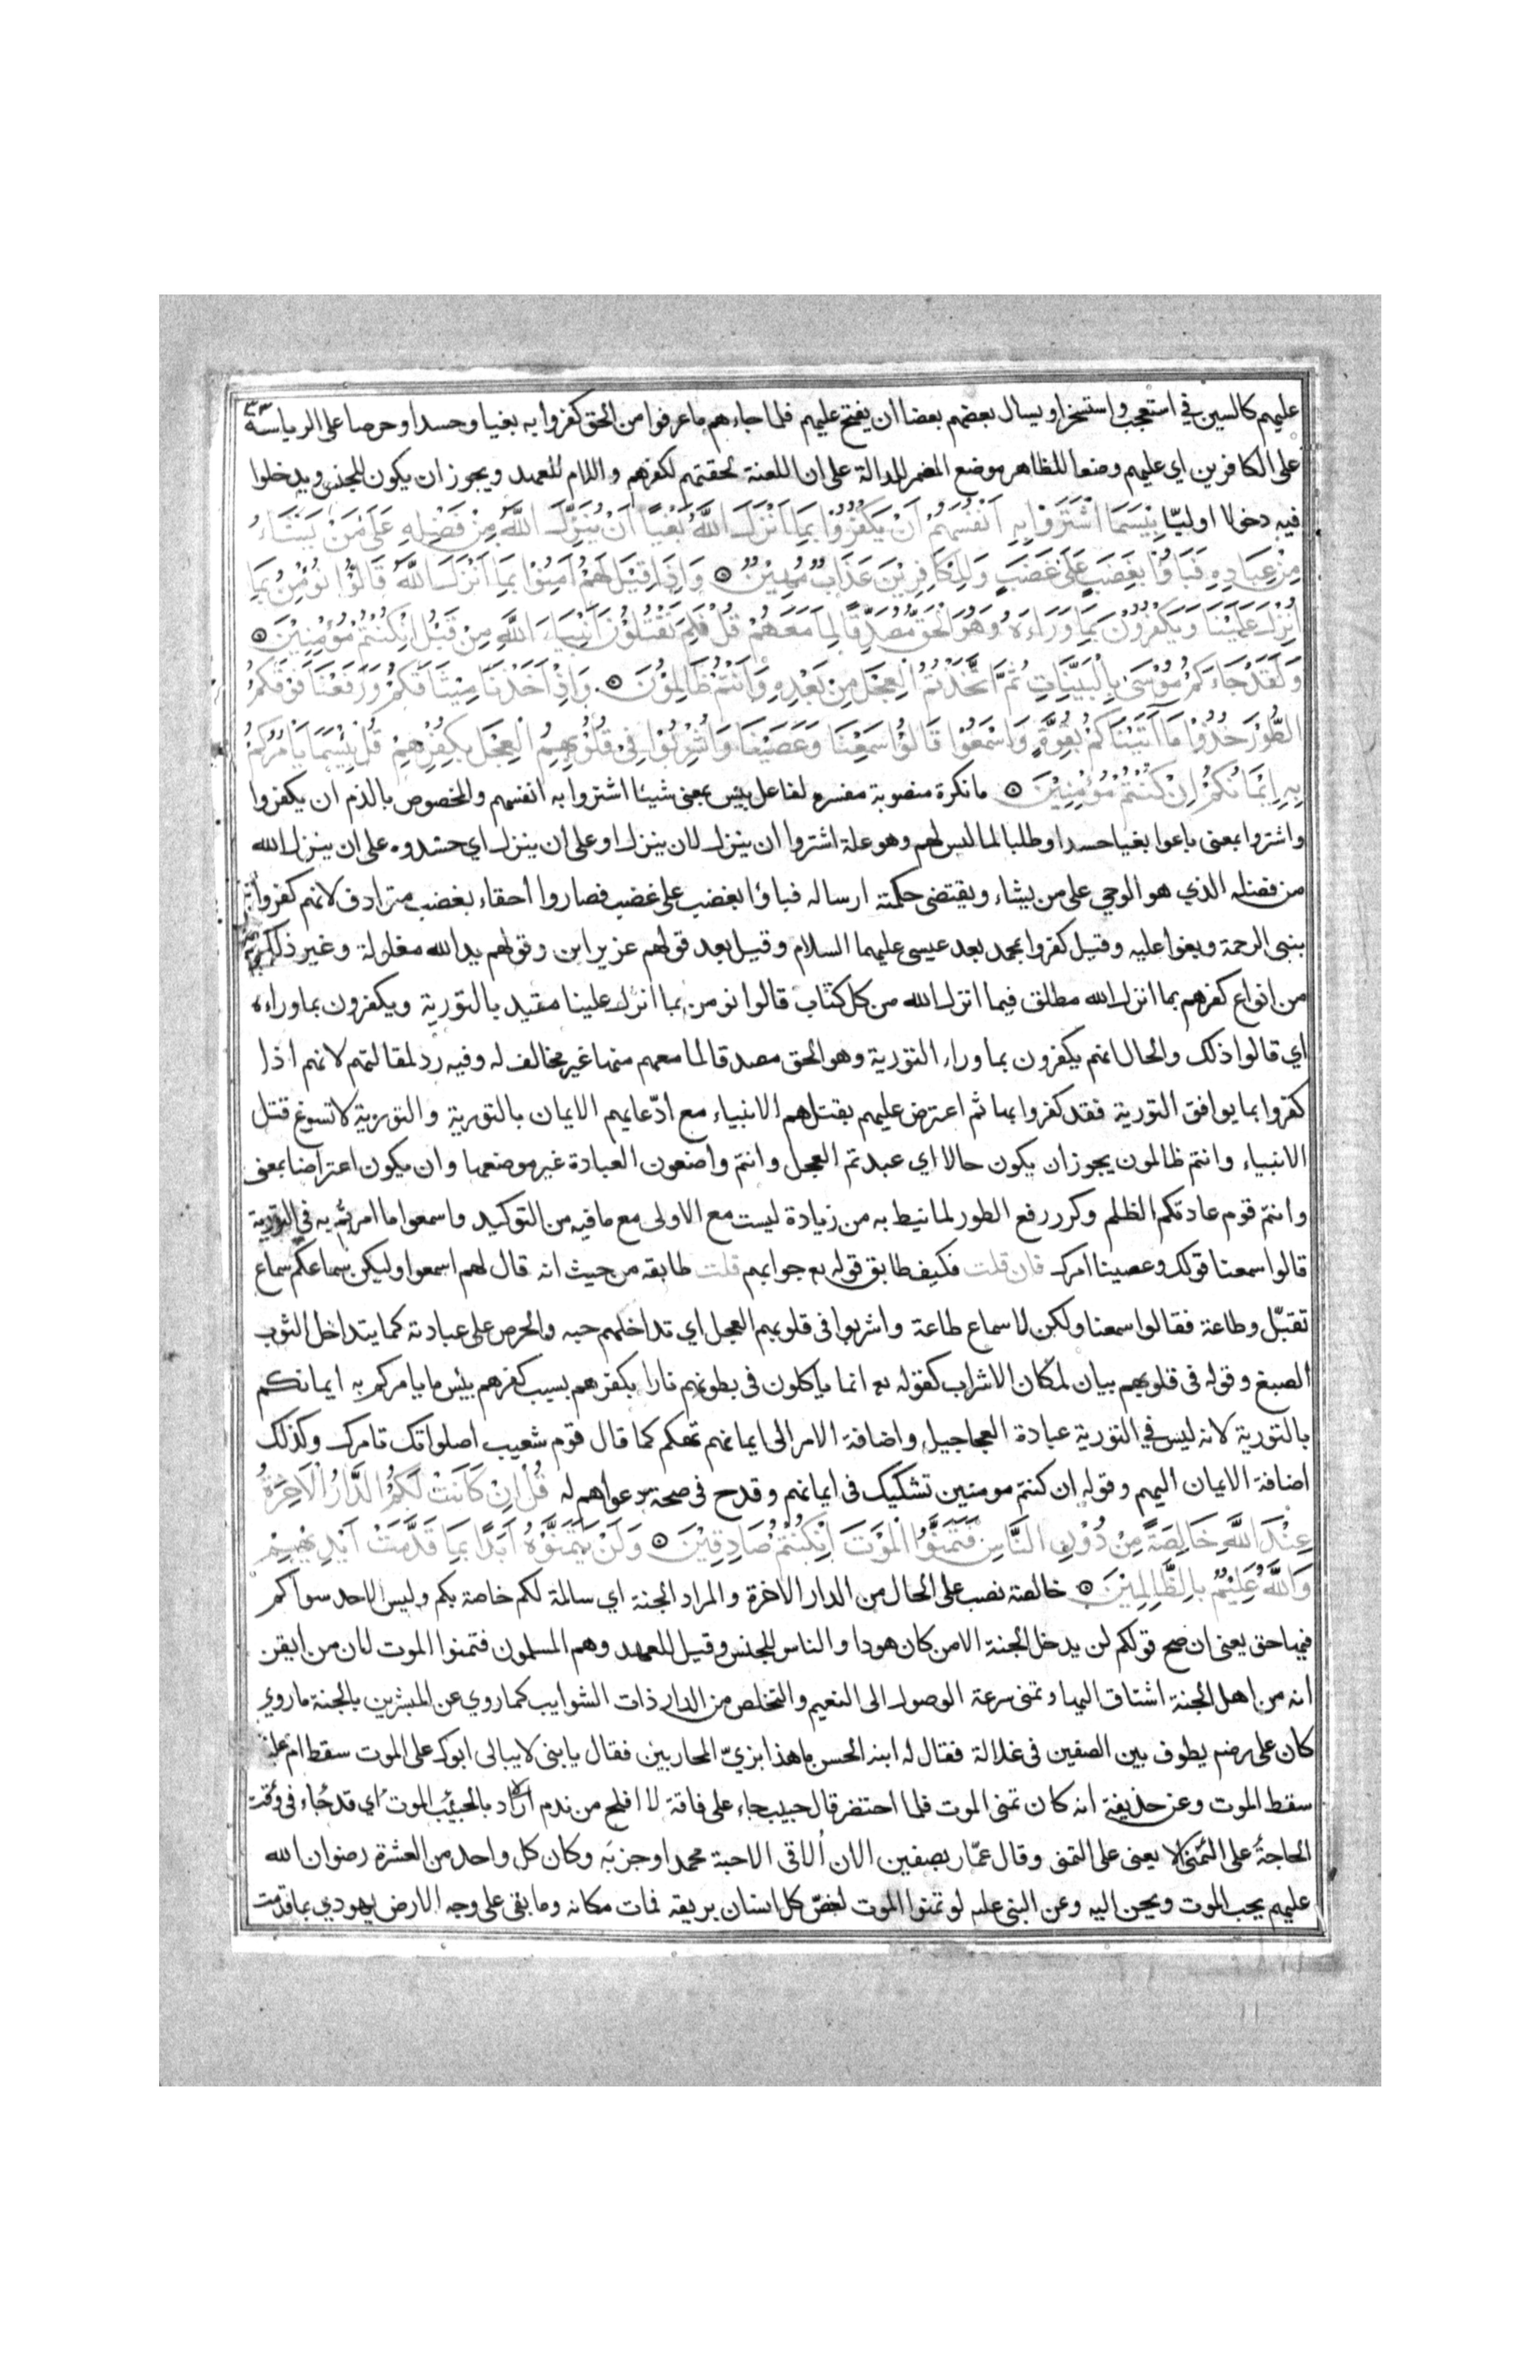 عليهم كالسين في استعجب واستسخر او يسال بعضهم بعضا ان يفتح عليهم فلما جاءهم ما عرفوا من الحق كفروا به بغيا وحسدا وحرصا على الرياسة
على الكافرين اي عليهم وضعا للظاهر موضع المضمر للدالة على ان اللعنة لحقتهم لكفرهم واللام للعهد ويجوز ان يكون للجنس ويدخلوا
فيه دخولا اوليّا بِئْسَمَا اشْتَرَوْا بِهِ اَنْفُسَهُمْ اَنْ يَكْفُرُوْا بِمَا اَنْزَلَ اللَّهُ بَغْيًا اَنْ يُنَزِّلَ اللَّهُ مِنْ فَضْلِهِ عَلَى مَنْ يَشَاءُ
مِنْ عِبَادِهِ فَبَاؤُا بِغَضَبٍ عَلَى غَضَبٍ وَلِلْكَافِرِيْنَ عَذَابٌ مُهِيْنٌ ۞ وَاِذَا قِيْلَ لَهُمْ اَمِنُوْا بِمَا اَنْزَلَ اللَّهُ قَالُوْا نُؤْمِنُ بِمَا
اُنْزِلَ عَلَيْنَا وَيَكْفُرُوْنَ بِمَا وَرَاءَهُ وَهُوَ الْحَقُّ مُصَدِّقًا لِمَا مَعَهُمْ قُلْ فَلِمَ تَقْتُلُوْنَ اَنْبِيَاءَ اللَّهِ مِنْ قَبْلُ اِنْ كُنْتُمْ مُؤْمِنِيْنَ ۞
وَلَقَدْ جَاءَكُمْ مُوْسَى بِالْبَيِّنَاتِ ثُمَّ اتَّخَذْتُمُ الْعِجْلَ مِنْ بَعْدِهِ وَاَنْتُمْ ظَالِمُوْنَ ۞ وَاِذْ اَخَذْنَا مِيْثَاقَكُمْ وَرَفَعْنَا فَوْقَكُمُ
الطُّوْرَ خُذُوْا مَا آتَيْنَاكُمْ بِقُوَّةٍ وَاسْمَعُوْا قَالُوْا سَمِعْنَا وَعَصَيْنَا وَاُشْرِبُوْا فِيْ قُلُوْبِهِمُ الْعِجْلَ بِكُفْرِهِمْ قُلْ بِئْسَمَا يَاْمُرُكُمْ
بِهِ اِيْمَانُكُمْ اِنْ كُنْتُمْ مُؤْمِنِيْنَ ۞ ما نكرة منصوبة مفسره لفاعل بئس بمعنى شيئا اشتروا به انفسهم والمخصوص بالذم ان يكفروا
واشتروا بمعنى باعوا بغيا حسدا وطلبا لما ليس لهم وهو علة اشتروا ان ينزل لان ينزل او على ان ينزل اي حسدوه على ان ينزل الله
من فضله الذي هو الوحي على من يشاء ويقتضى حكمته ارساله فباؤا بغضب على غضب فصاروا أحقاء بغضب مترادف لانهم كفروا
بنبى الرحمة وبغوا عليه وقيل كفروا بمحمد بعد عيسى عليهما السلام وقيل بعد قولهم عزير ابن وقولهم يد الله مغلولة وغير ذلك
من انواع كفرهم بما انزل الله مطلق فيما انزل الله من كل كتاب قالوا نومن بما انزل علينا مقيد بالتورية ويكفرون بما وراءه
اي قالوا ذلك والحال انهم يكفرون بما وراء التورية وهو الحق مصدقا لما معهم منها غير مخالف له وفيه رد لمقالتهم لانهم اذا
كفروا بما يوافق التورية فقد كفروا بها ثم اعترض عليهم بقتلهم الانبياء مع ادّعايهم الايمان بالتورية والتورية لا تسوغ قتل
الانبياء وانتم ظالمون يجوز ان يكون حالا اي عبدتم العجل وانتم واضعون العبادة غير موضعها وان يكون اعتراضا بمعنى
وانتم قوم عادتكم الظلم وكرر رفع الطور لما نيط به من زيادة ليست مع الاولى مع ما فيه من التوكيد واسمعوا ما امرتم به في التورية
قالوا سمعنا قولك وعصينا امرك فان قلت فكيف طابق قوله جوابهم قلت طابقه من حيث انه قال لهم اسمعوا وليكن سماعكم سماع
تقبّل وطاعة فقالوا سمعنا ولكن لا سماع طاعة واشربوا فى قلوبهم العجل اي تداخلهم حبه والحرص على عبادته كما يتداخل الثوب
الصبغ وقوله فى قلوبهم بيان لمكان الاشراب كقوله تع انما ياكلون فى بطونهم نارا بكفرهم بسبب كفرهم بئس ما يامركم به ايمانكم
بالتورية لانه ليس في التورية عبادة العجاجيل واضافة الامر الى ايمانهم تهكم كما قال قوم شعيب اصلواتك تامرك وكذلك
اضافة الايمان اليهم وقوله ان كنتم مومنين تشكيك فى ايمانهم وقدح فى صحة دعواهم له قُلْ اِنْ كَانَتْ لَكُمُ الدَّارُ الْاَخِرَةُ
عِنْدَ اللَّهِ خَالِصَةً مِنْ دُوْنِ النَّاسِ فَتَمَنَّوُا الْمَوْتَ اِنْ كُنْتُمْ صَادِقِيْنَ ۞ وَلَنْ يَتَمَنَّوْهُ اَبَدًا بِمَا قَدَّمَتْ اَيْدِيْهِمْ
وَاللَّهُ عَلِيْمٌ بِالظَّالِمِيْنَ ۞ خالصة نصب على الحال من الدار الاخرة والمراد الجنة اي سالمة لكم خاصة بكم وليس لاحد سواكم
فيها حق يعنى ان صح قولكم لن يدخل الجنة الا من كان هودا والناس للجنس وقيل للعهد وهم المسلمون فتمنوا الموت لان من ايقن
انه من اهل الجنة اشتاق اليها وتمنى سرعة الوصول الى النعيم والتخلص من الدار ذات الشوايب كما روي عن المبشرين بالجنة ما روي
كان على رضه يطوف بين الصفين فى غلالة فقال له ابنه الحسن ما هذا بزيّ المحاربين فقال يا بنى لا يبالى ابوك على الموت سقط ام عليه
سقط الموت وعن حذيفة انه كان تمنى الموت فلما احتضر قال حبيب جاء على فاقة لا افلح من ندم اراد بالحبيب الموت اي قد جاء فى وقت
الحاجة على التمنى لا يعنى على التمنى وقال عمّار بصفين الان اُلاقى الاحبة محمدا وحزبَه وكان كل واحد من العشرة رضوان الله
عليهم يحب الموت ويحن اليه وعن النبى علىم لو تمنوا الموت لغصّ كل انسان بريقه فمات مكانه وما بقى على وجه الارض يهودي بما قدمت